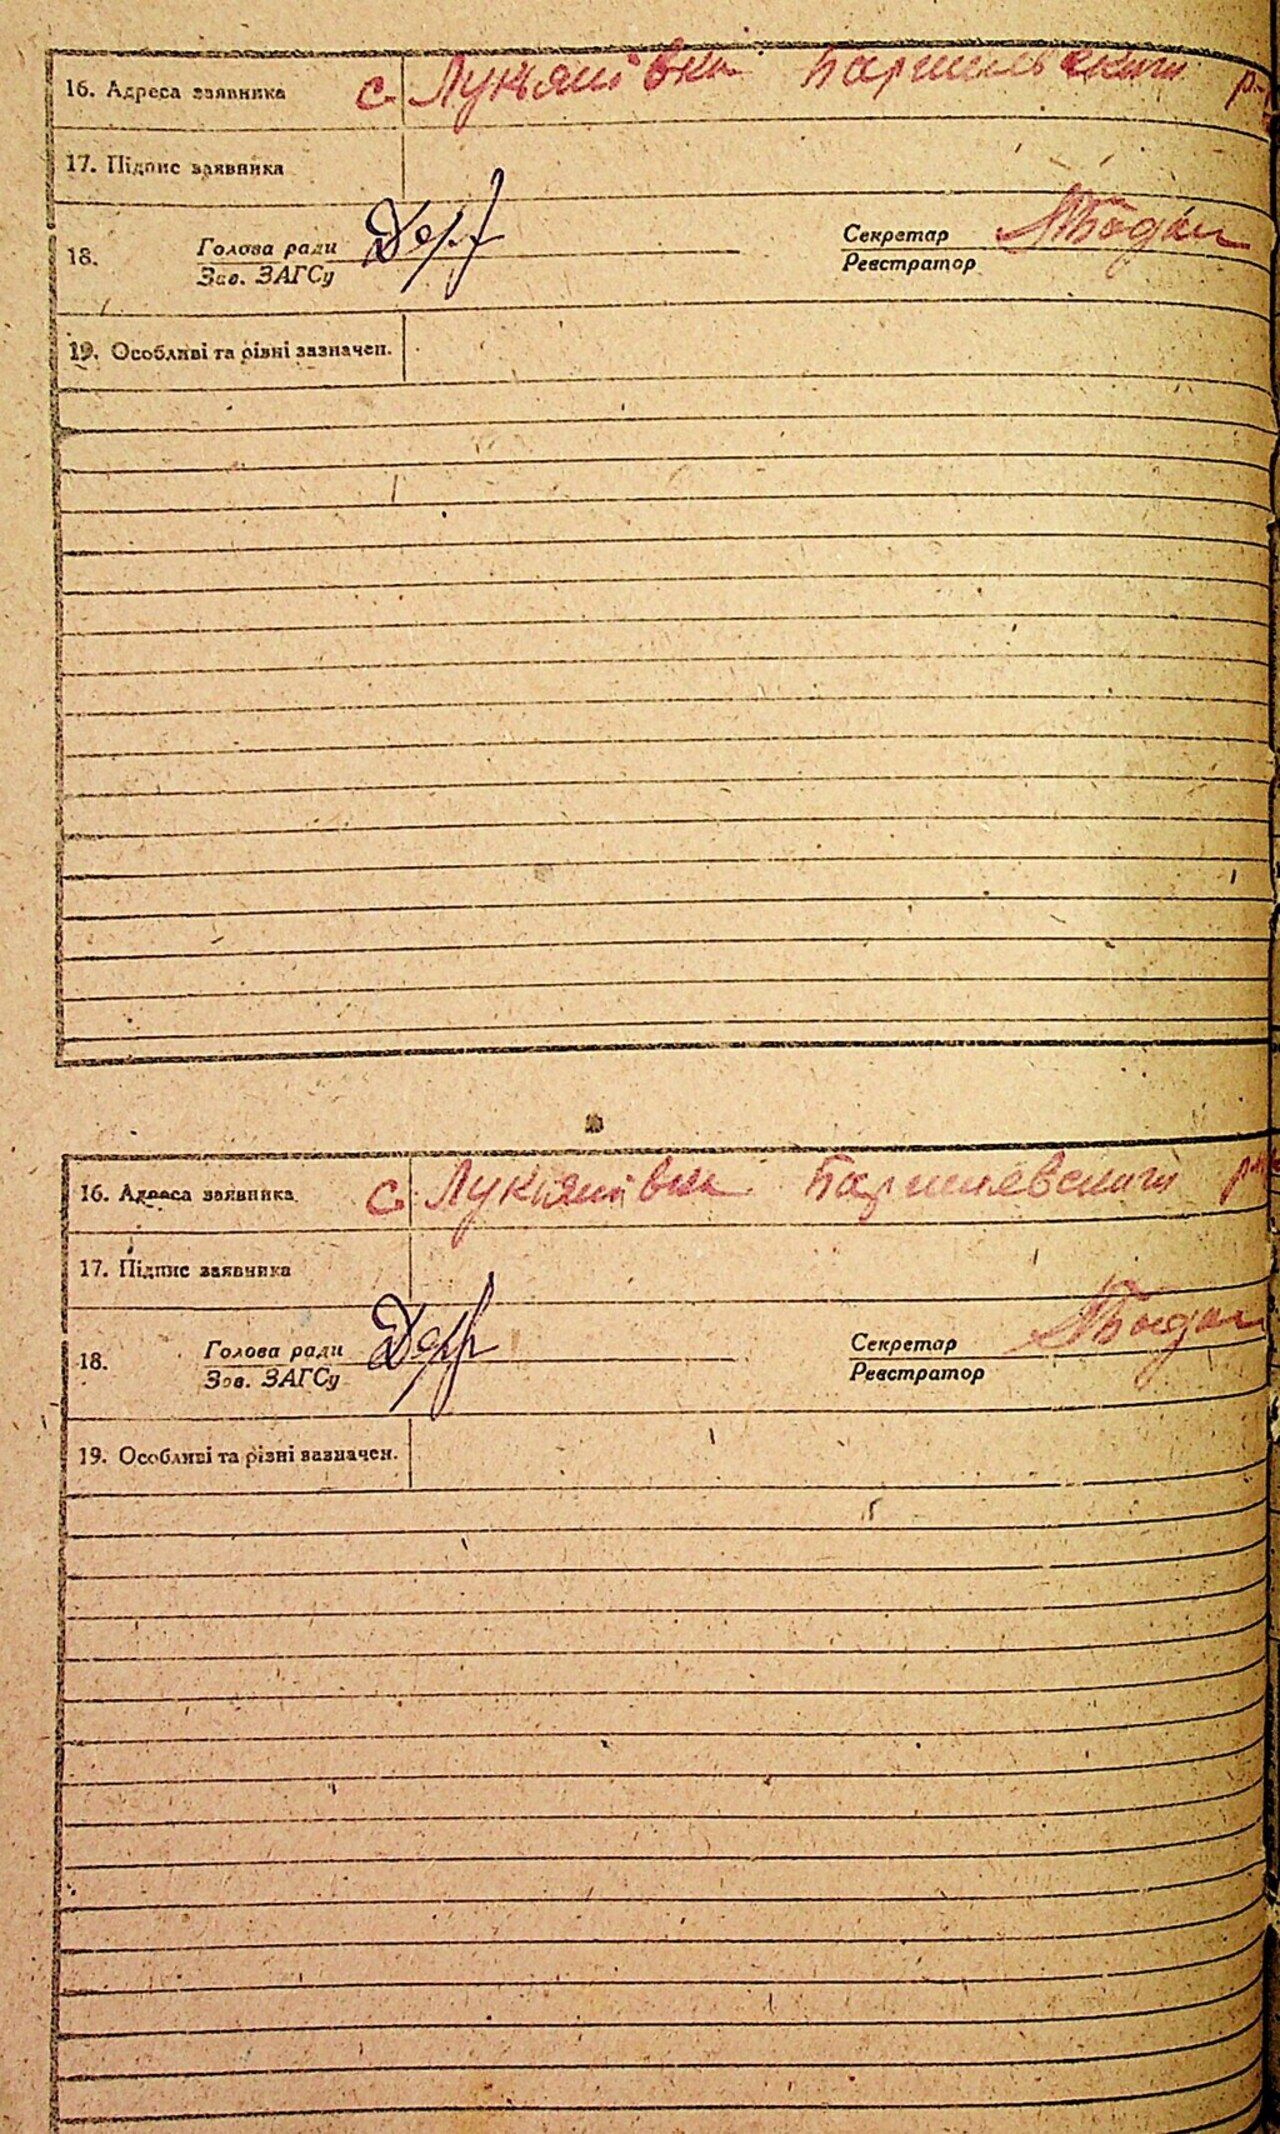 16. Адреса заявника с. Лукянівка Баришевського р-
17. Підпис заявника
18. Голова ради Секретар
Зав. ЗАГСу Реєстратор
19. Особливі та різні зазначен.
16. Адреса заявника с. Лукянівка Баришевського р-
17. Підпис заявника
18. Голова ради Секретар
Зав. ЗАГСу Реєстратор
19. Особливі та різні зазначен.